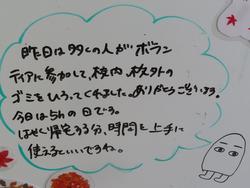 昨日は多くの人が、ボラン
ティアに参加して、校内、校外の
ゴミをひろってくれました。ありがとうございます。
今日は5hの日です。
はやく帰宅する分、時間を上手に
使えるといいですね。